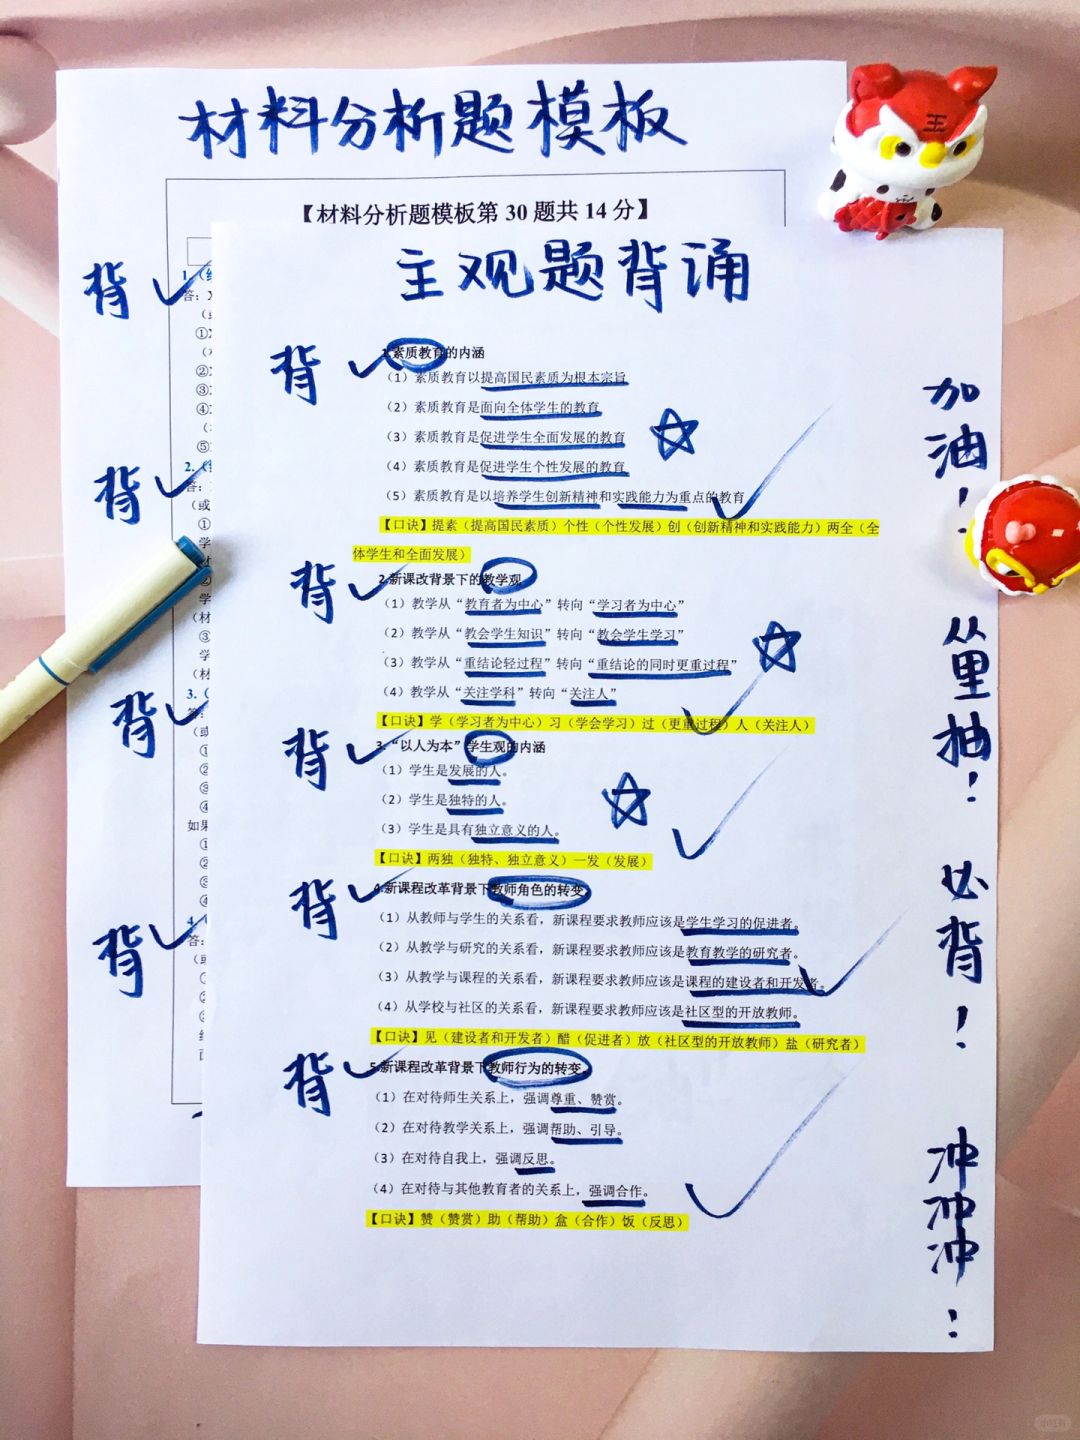 材料分析题模板
【材料分析题模板第30题共14分】
背
背
背
背
主观题背诵
背
1.素质教育的内涵
（1）素质教育以提高国民素质为根本宗旨
（2）素质教育是面向全体学生的教育
（3）素质教育是促进学生全面发展的教育
（4）素质教育是促进学生个性发展的教育
（5）素质教育是以培养学生创新精神和实践能力为重点的教育
【口诀】提素（提高国民素质）个性（个性发展）创（创新精神和实践能力）两全（全
体学生和全面发展）
背
2.新课改背景下的教学观
（1）教学从“教育者为中心”转向“学习者为中心”
（2）教学从“教会学生知识”转向“教会学生学习”
（3）教学从“重结论轻过程”转向“重结论的同时更重过程”
（4）教学从“关注学科”转向“关注人”
【口诀】学（学习者为中心）习（学会学习）过（更重过程）人（关注人）
背
3.“以人为本”学生观的内涵
（1）学生是发展的人。
（2）学生是独特的人。
（3）学生是具有独立意义的人。
【口诀】两独（独特、独立意义）一发（发展）
背
4.新课程改革背景下教师角色的转变
（1）从教师与学生的关系看，新课程要求教师应该是学生学习的促进者。
（2）从教学与研究的关系看，新课程要求教师应该是教育教学的研究者。
（3）从教学与课程的关系看，新课程要求教师应该是课程的建设者和开发者。
（4）从学校与社区的关系看，新课程要求教师应该是社区型的开放教师。
【口诀】见（建设者和开发者）醋（促进者）放（社区型的开放教师）盐（研究者）
背
5.新课程改革背景下教师行为的转变。
（1）在对待师生关系上，强调尊重、赞赏。
（2）在对待教学关系上，强调帮助、引导。
（3）在对待自我上，强调反思。
（4）在对待与其他教育者的关系上，强调合作。
【口诀】赞（赞赏）助（帮助）盒（合作）饭（反思）
加油！
从里抽！
必背！
冲冲冲！
王
小红书